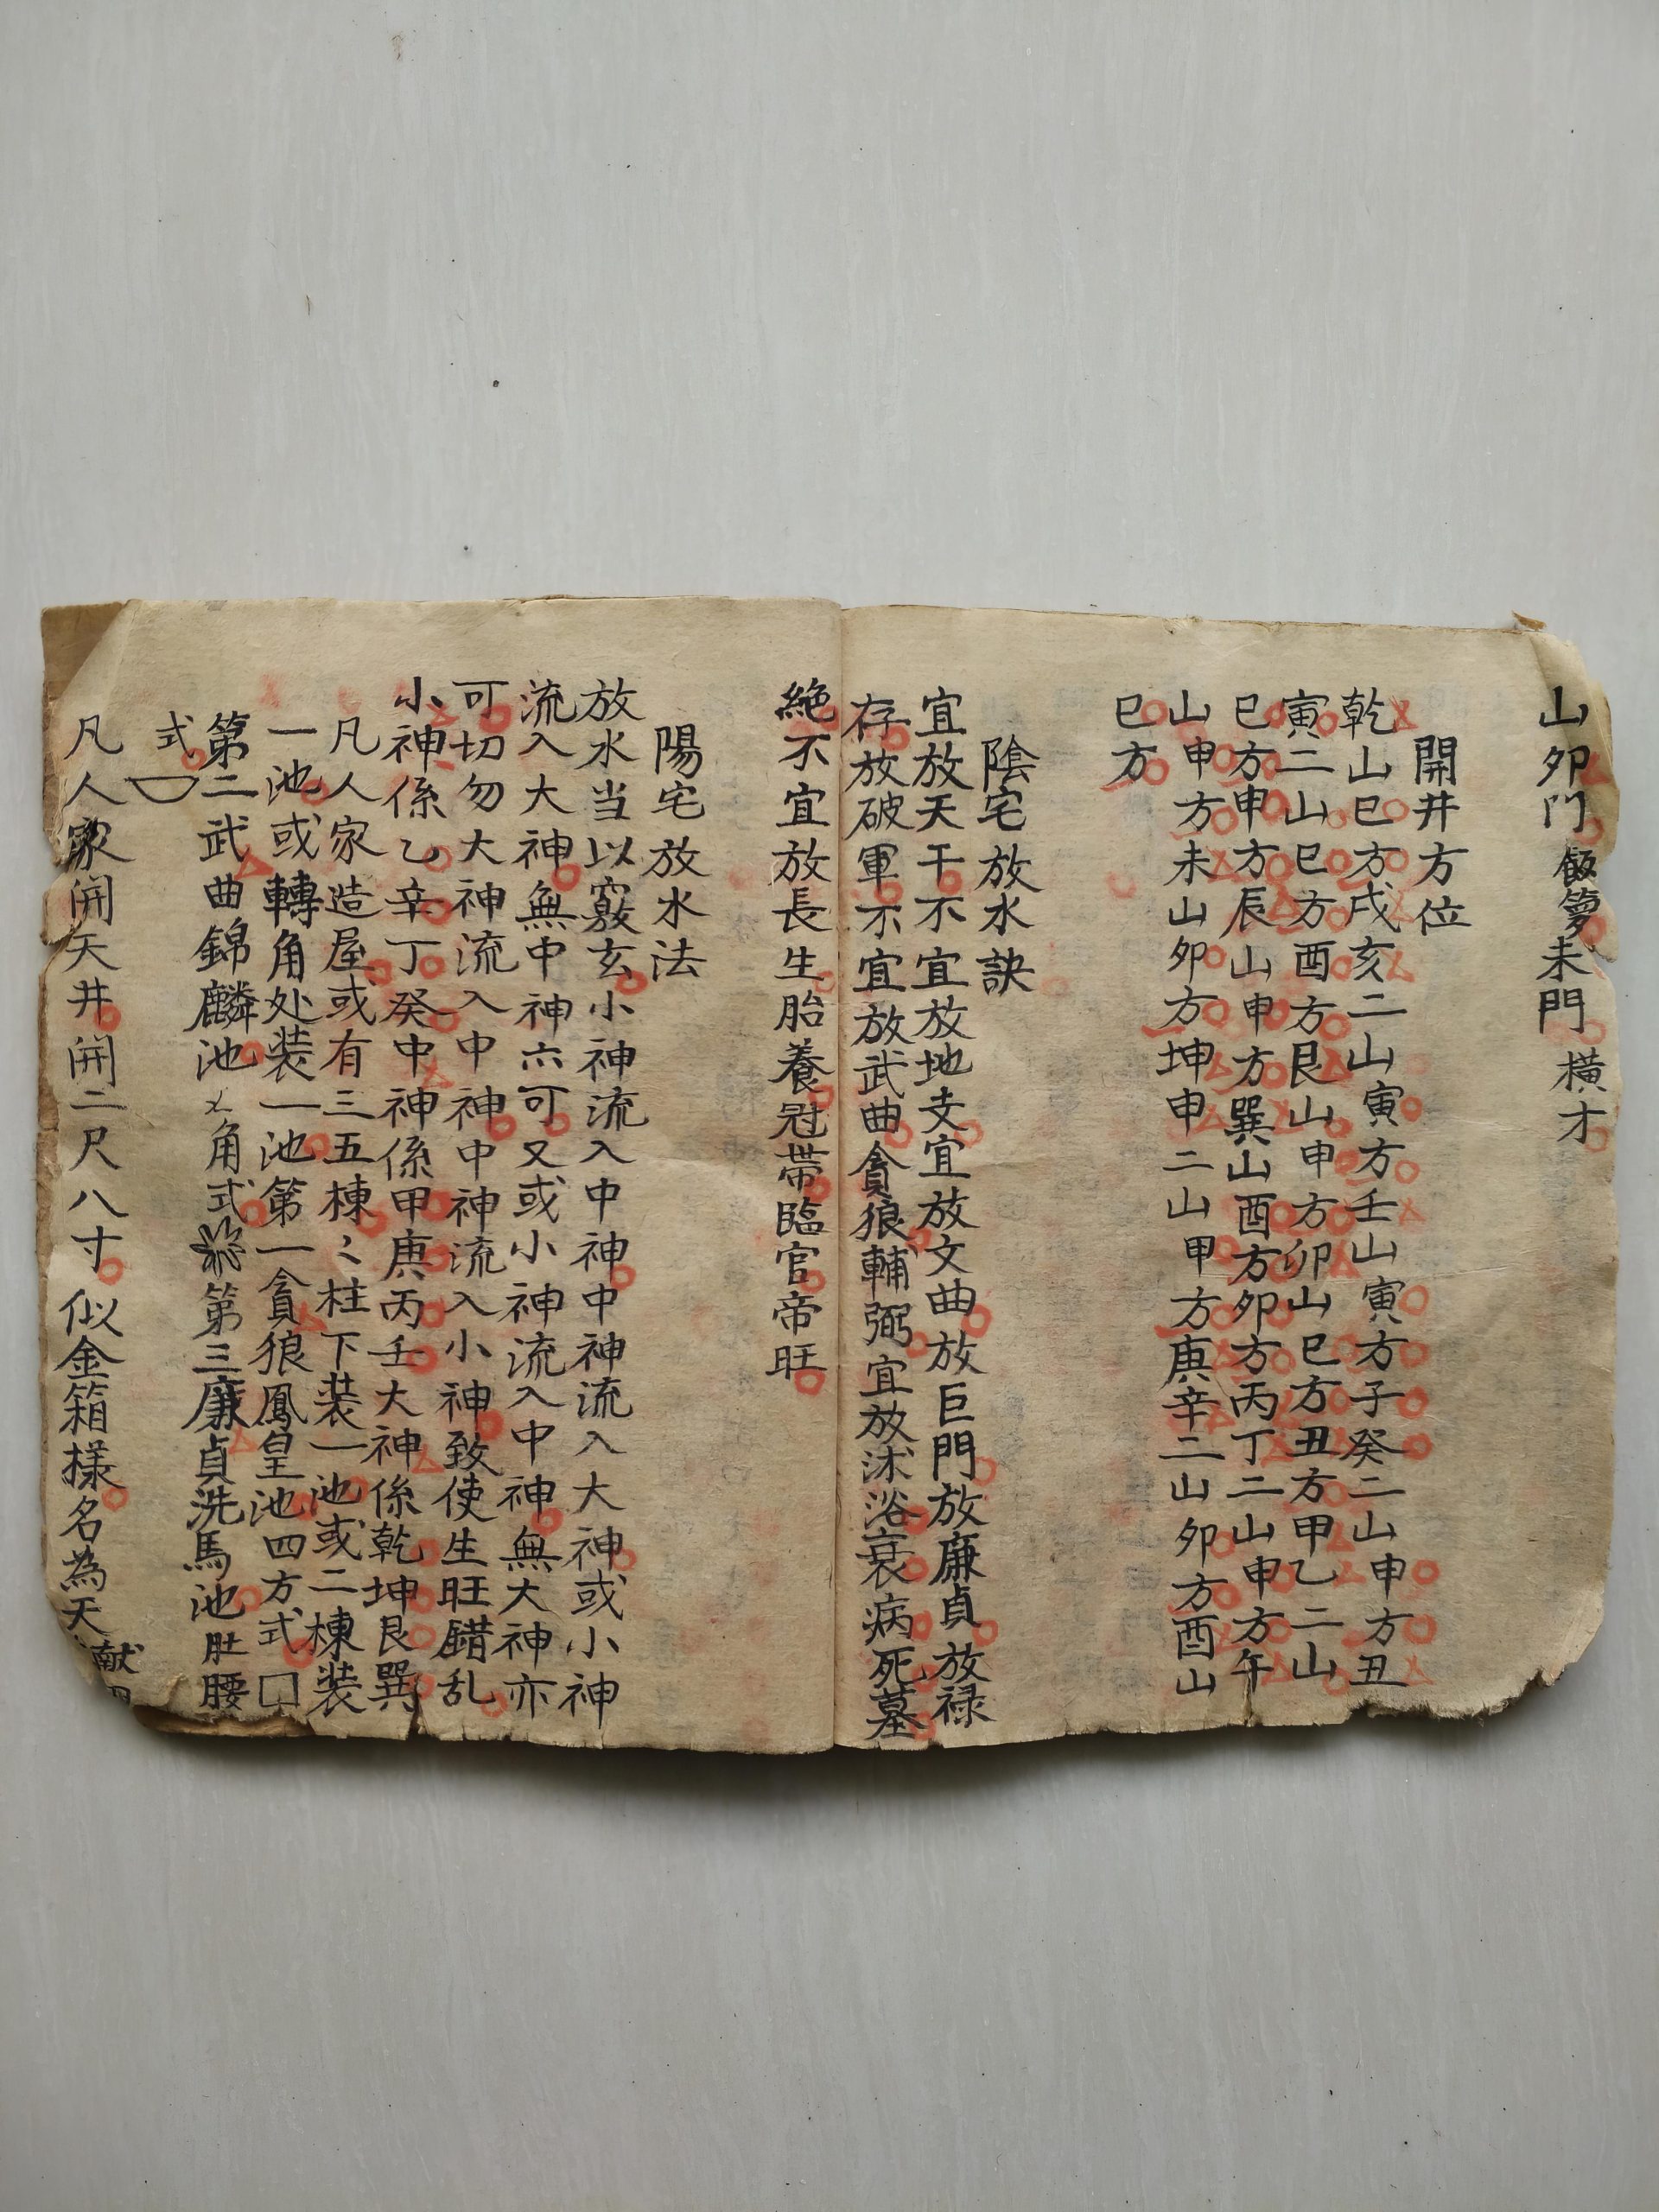 山卯門飯籮未門橫才
開井方位
乾山巳方戌亥二山寅方壬山寅方子癸二山申方丑
寅二山巳方酉方艮山申方卯山巳方丑方甲乙二山
巳方申方辰山申方巽山酉方卯方丙丁二山申方午
山申方未山卯方坤申二山甲方庚辛二山卯方酉山
巳方
陰宅放水訣
宜放天干不宜放地支宜放文曲放巨門放廉貞放禄
存放破軍不宜放武曲貪狼輔弼宜放沭浴衰病死墓
絶不宜放長生胎養冠帶臨官帝旺
陽宅放水法
放水当以竅玄小神流入中神中神流入大神或小神
流入大神無中神六可又或小神流入中神無大神亦
可切勿大神流入中神中神流入小神致使生旺錯乱
小神係乙辛丁癸中神係甲庚丙壬大神係乾坤艮巽
凡人家造屋或有三五棟〻柱下装一池或二棟装
一池或轉角处装一池第一貪狼鳳皇池四方式
第二武曲錦麟池㐅角式第三廉貞洗馬池肚腰
式
凡人家開天井開二尺八寸似金箱樣名為天
献